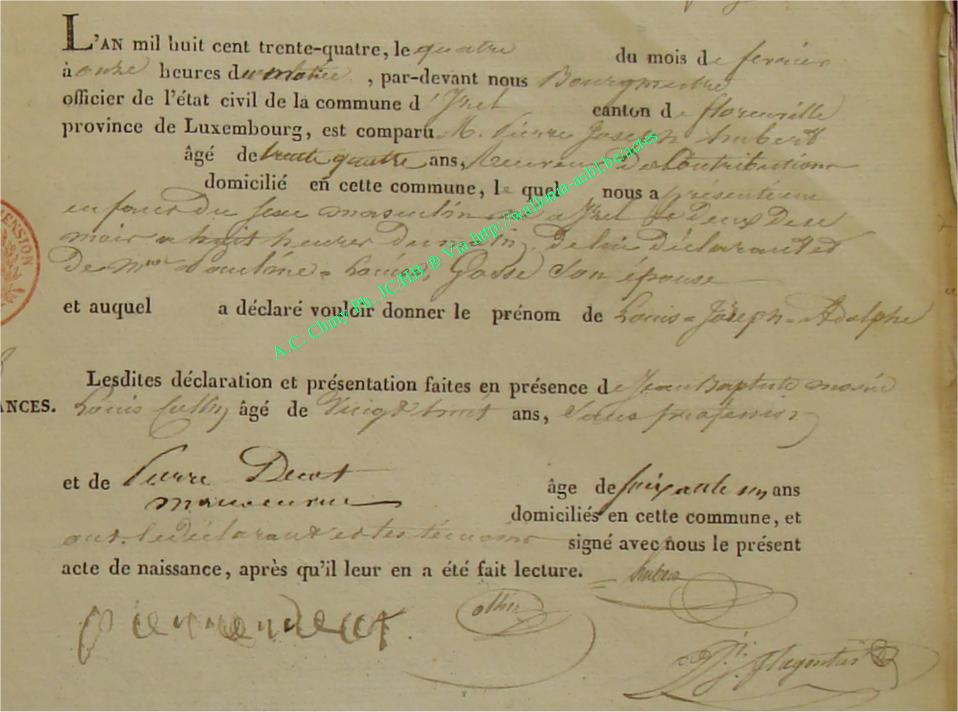 L'AN mil huit cent trente-quatre, le quatre du mois de fevrier
à onze heures du matin, par-devant nous Bourgmestre
officier de l'état civil de la commune d'Izel canton de florenville
province de Luxembourg, est comparu M. Pierre Joseph hubert
âgé de trente quatre ans, Receveur des Contributions
domicilié en cette commune, lequel nous a présenté un
enfant du sexe masculin né a Izel le deux du
mois a huit heures du matin, de lui déclarant et
de Mme Pauline Louise Gosse Son épouse
et auquel a déclaré vouloir donner le prénom de Louis-Joseph-Adolphe
Lesdites déclaration et présentation faites en présence de Jean Baptiste
ANCES. Louis âgé de Vingt huit ans, Sans profession
et de Pierre Decot âge de soixante un ans
manoeuvre domiciliés en cette commune, et
ont le déclarant et les témoins signé avec nous le présent
acte de naissance, après qu'il leur en a été fait lecture.
hubert
pierre decot
ENSION
A.C. Chiny Ph. JC HB ® Via http://wallonia-asbl.be/actes